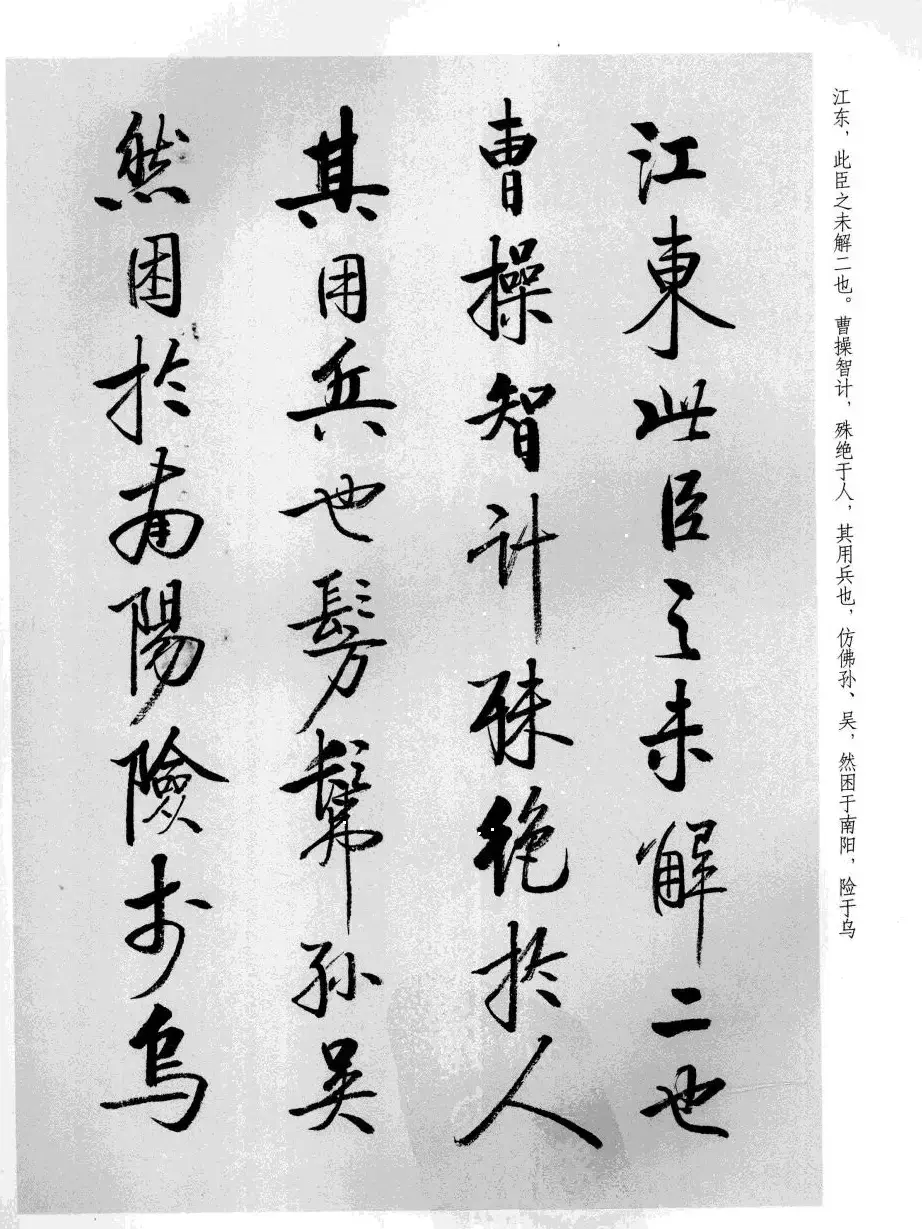 江东，此臣之未解二也。曹操智计，殊绝于人，其用兵也，仿佛孙、吴，然困于南阳，险于乌
江東此臣之未解二也
曹操智計殊絶於人
其用兵也髣髴孫吳
然困於南陽險於烏